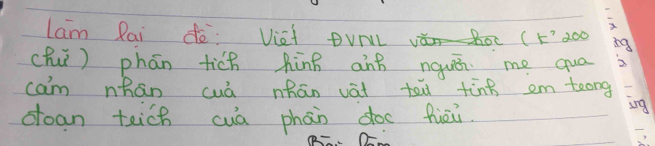 Làm lại đề: Viết ĐVNL văn học (k² 200
chữ) phân tích hình ảnh người mẹ qua
cảm nhân của nhân vật trữ tình em trong
đoạn trích của phần đọc hiểu.
Bài làm